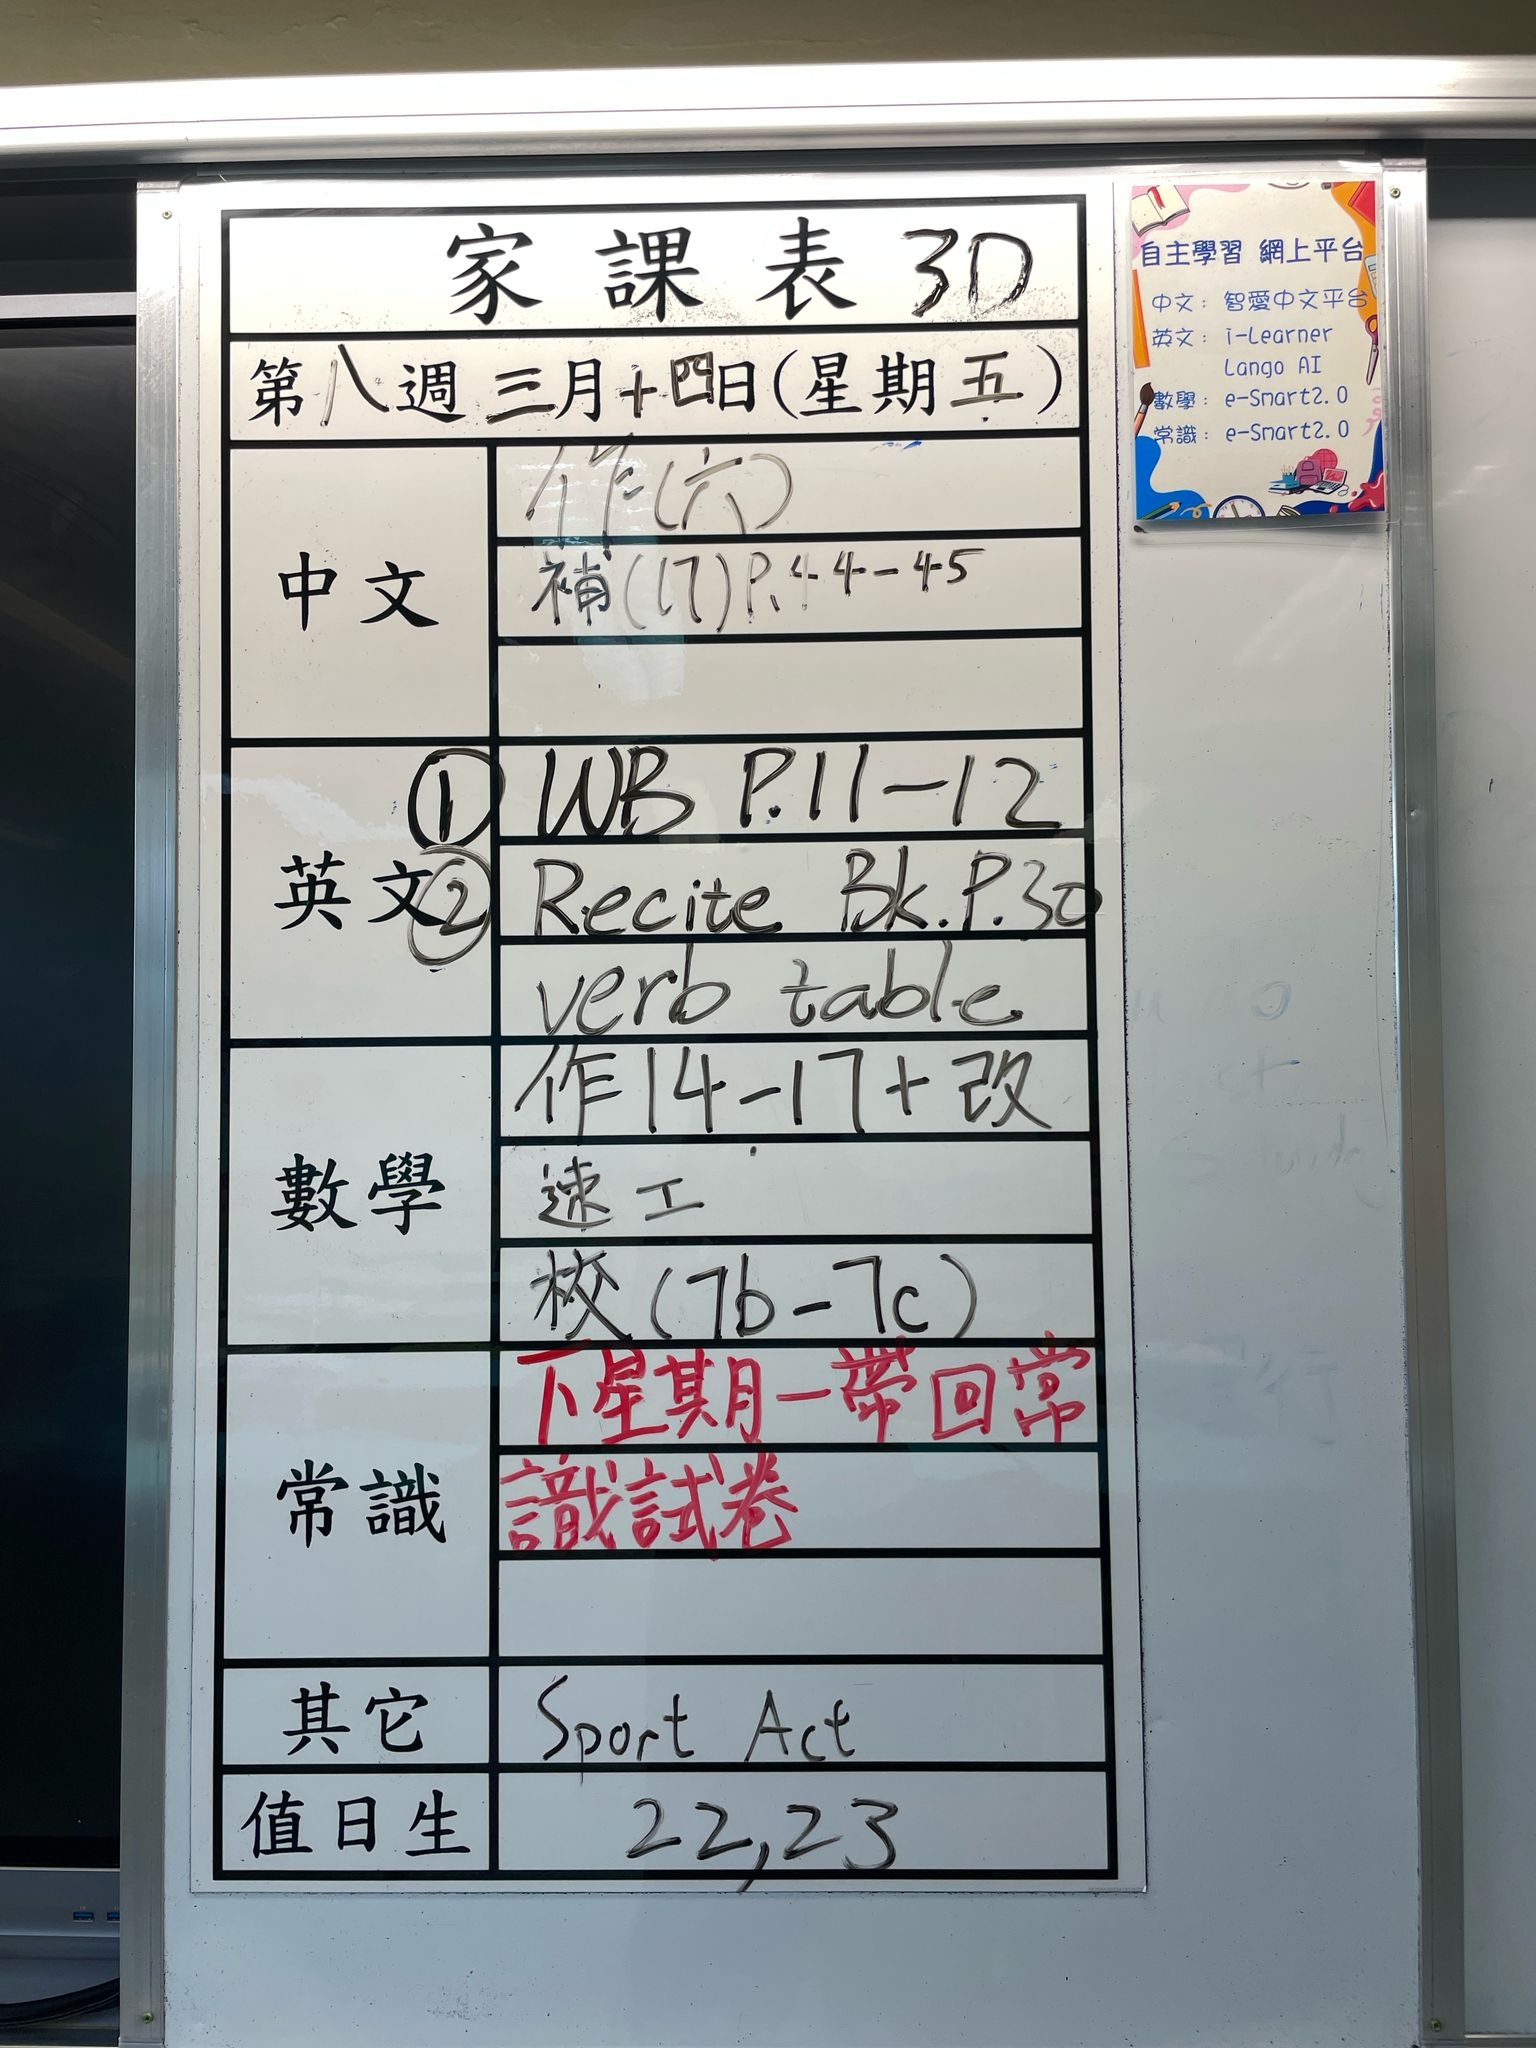 家課表 3D
第八週 三月十四日(星期五)
中文
作(六)
補(17)P.44-45
英文
① WB P.11-12
② Recite Bk.P.30
verb table
數學
作14-17+改
速工
校(7b-7c)
常識
下星期一帶回常
識試卷
其它
Sport Act
值日生
22,23
自主學習 網上平台
中文：智愛中文平台
英文：i-Learner
Lango AI
數學：e-Smart2.0
常識：e-Smart2.0